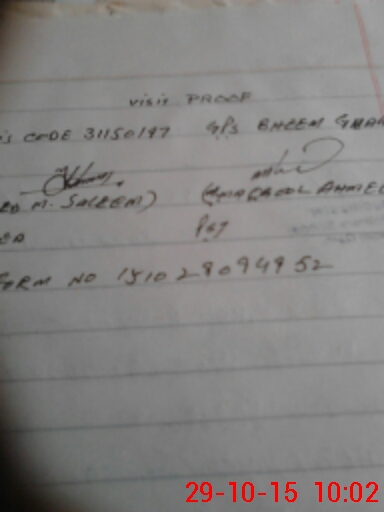 visit PROOF
is CODE 31150197 GPS BHEEM GHAR
M. SALEEM) (MAQBOOL AHMED
PST
FORM NO 151029094952
29-10-15 10:02